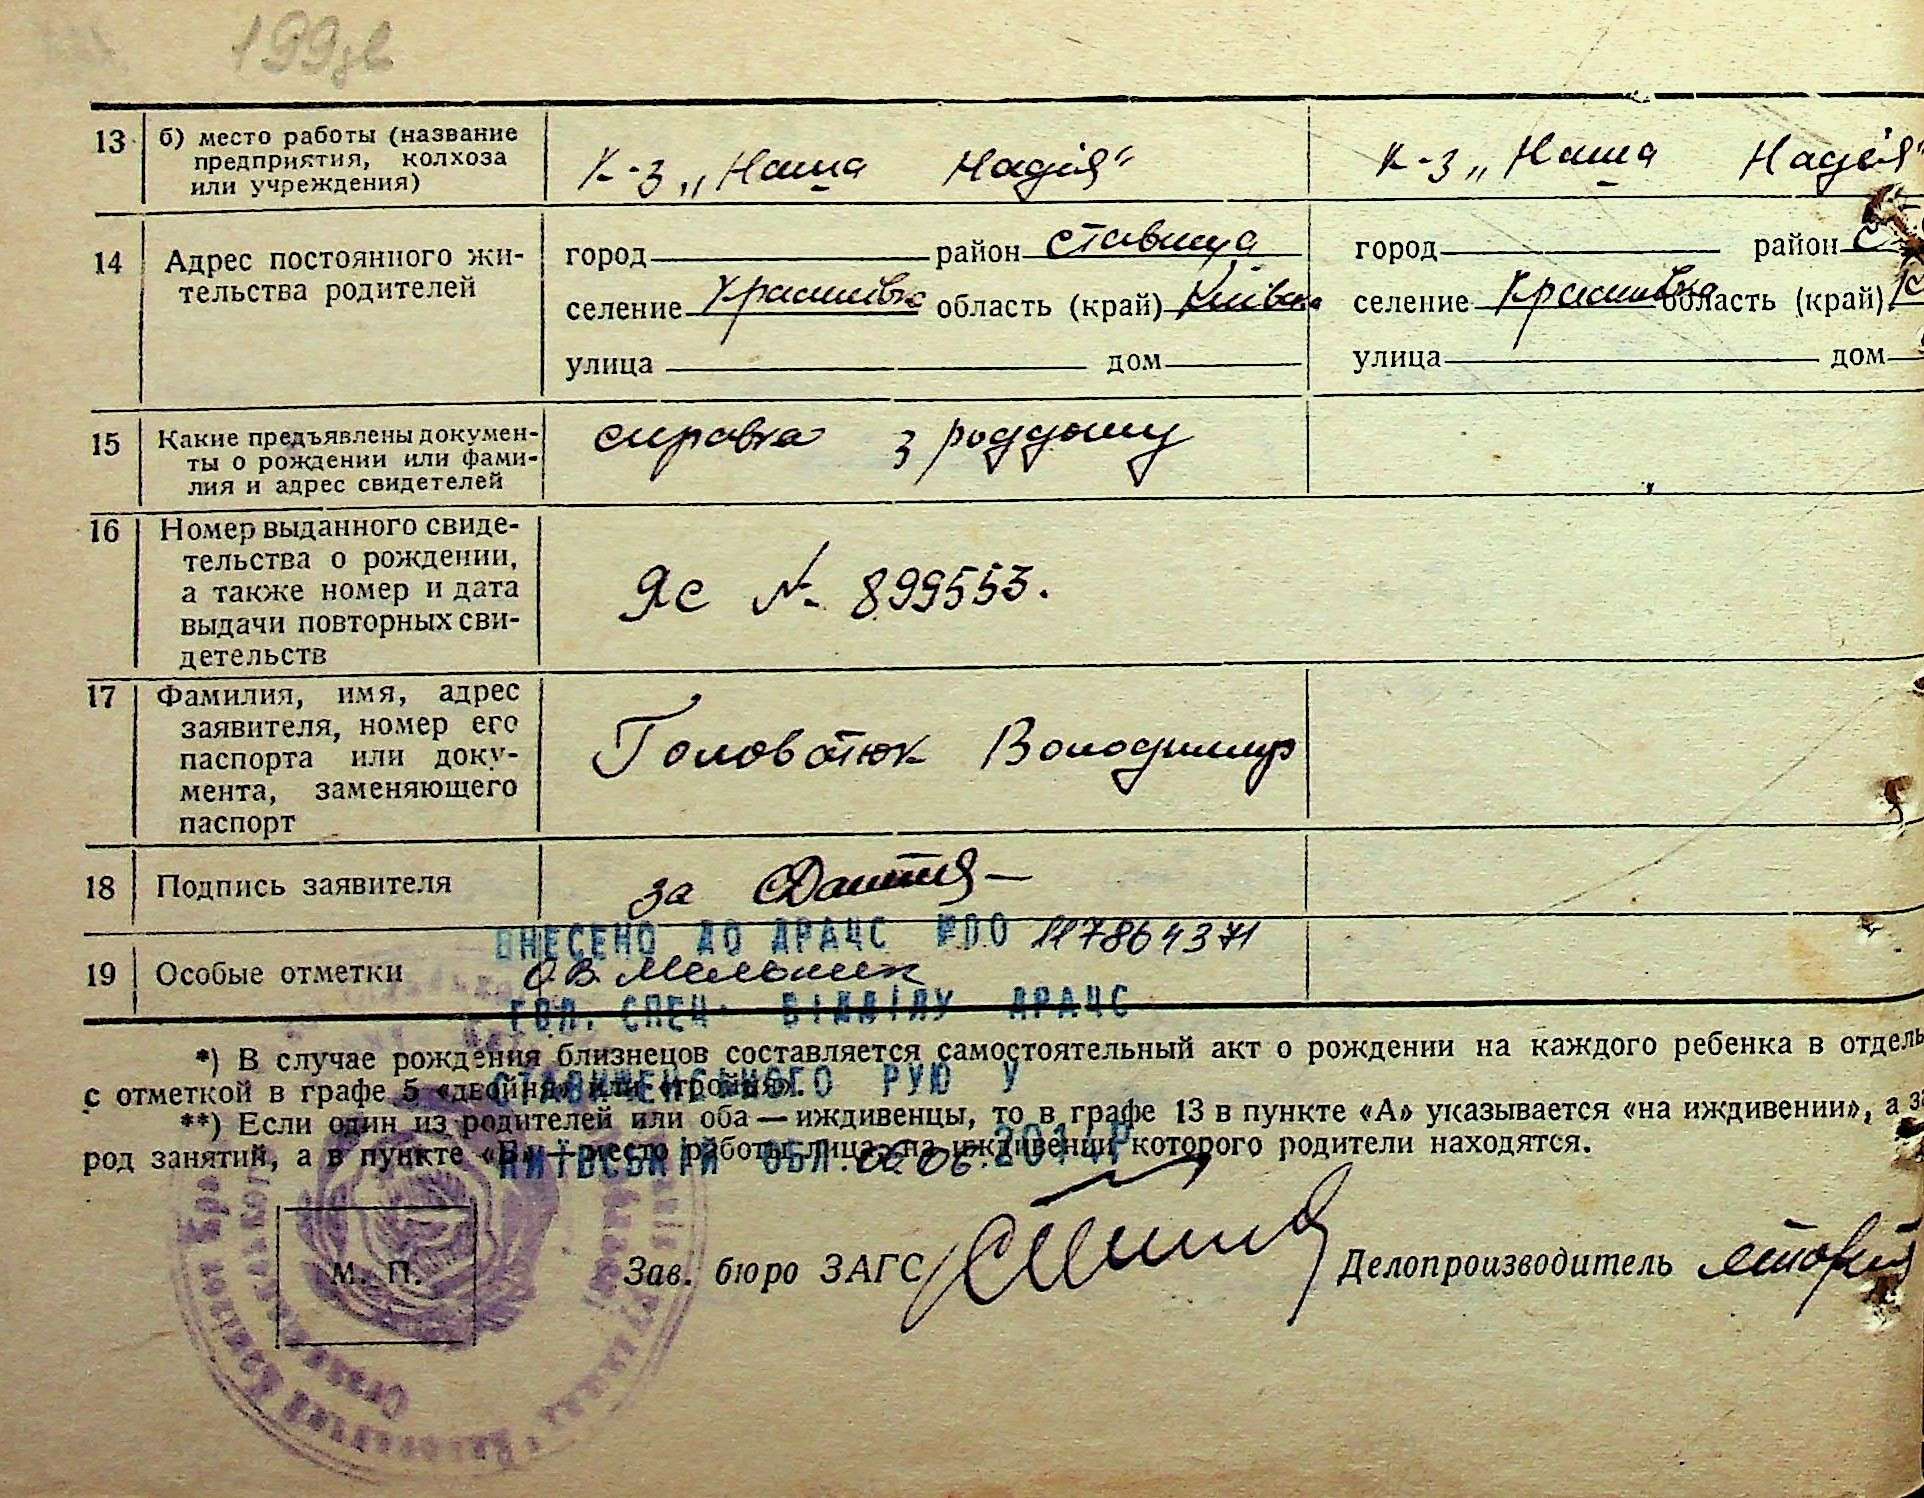 199
13 б) место работы (название предприятия, колхоза или учреждения) К-з „Наша Надія" К-з „Наша Надія"
14 Адрес постоянного жительства родителей
город район Ставища город район С
селение Красилівка область (край) Київська селение Красилівка область (край) К
улица дом улица дом
15 Какие предъявлены документы о рождении или фамилия и адрес свидетелей справка з роддому
16 Номер выданного свидетельства о рождении, а также номер и дата выдачи повторных свидетельств ЯС № 899553.
17 Фамилия, имя, адрес заявителя, номер его паспорта или документа, заменяющего паспорт Головатюк Володимир
18 Подпись заявителя за
ВНЕСЕНО ДО ДРАЦС 117864371
19 Особые отметки О.В. Мельник
ГОЛ. СПЕЦ. ВІДДІЛУ ДРАЦС
*) В случае рождения близнецов составляется самостоятельный акт о рождении на каждого ребенка в отдель
СТАВИЩЕНСЬКОГО РУЮ У
с отметкой в графе 5 «двойня» или «тройня».
**) Если один из родителей или оба — иждивенцы, то в графе 13 в пункте «А» указывается «на иждивении», а за
КИЇВСЬКІЙ ОБЛ. 06.06.2014Р
род занятий, а в пункте «Б» — место работы лица, на иждивении которого родители находятся.
М. П. Зав. бюро ЗАГС Делопроизводитель